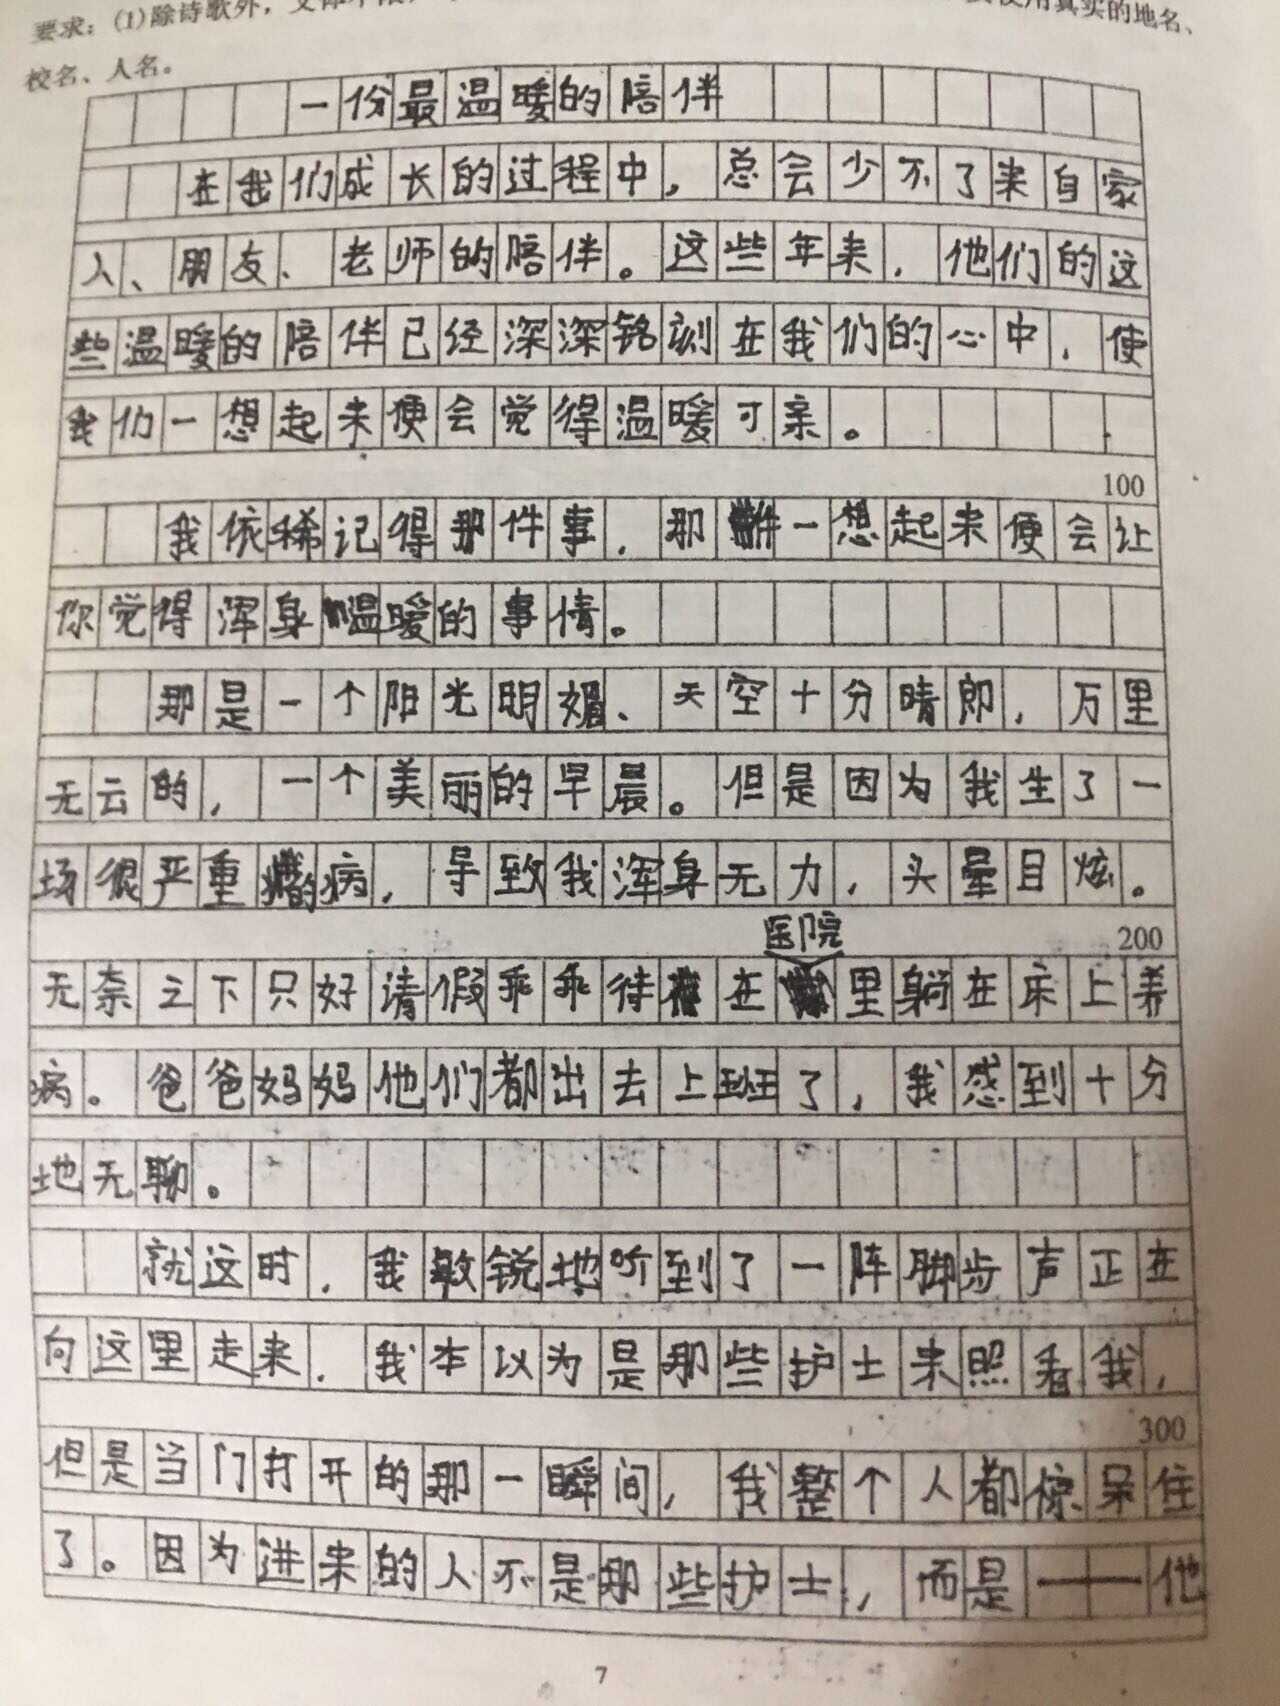 要求：(1)除诗歌外，文体不限，使用真实的地名、
校名、人名。
一份最温暖的陪伴
在我们成长的过程中，总会少不了来自家
人、朋友、老师的陪伴。这些年来，他们的这
些温暖的陪伴已经深深铭刻在我们的心中，使
我们一想起来便会觉得温暖可亲。
100
我依稀记得那件事，那件一想起来便会让
你觉得浑身温暖的事情。
那是一个阳光明媚、天空十分晴郎，万里
无云的，一个美丽的早晨。但是因为我生了一
场很严重的病，导致我浑身无力，头晕目炫。
医院
200
无奈之下只好请假乖乖待在里躺在床上养
病。爸爸妈妈他们都出去上班了，我感到十分
地无聊。
就这时，我敏锐地听到了一阵脚步声正在
向这里走来，我本以为是那些护士来照看我，
300
但是当门打开的那一瞬间，我整个人都惊呆住
了。因为进来的人不是那些护士，而是——他
7